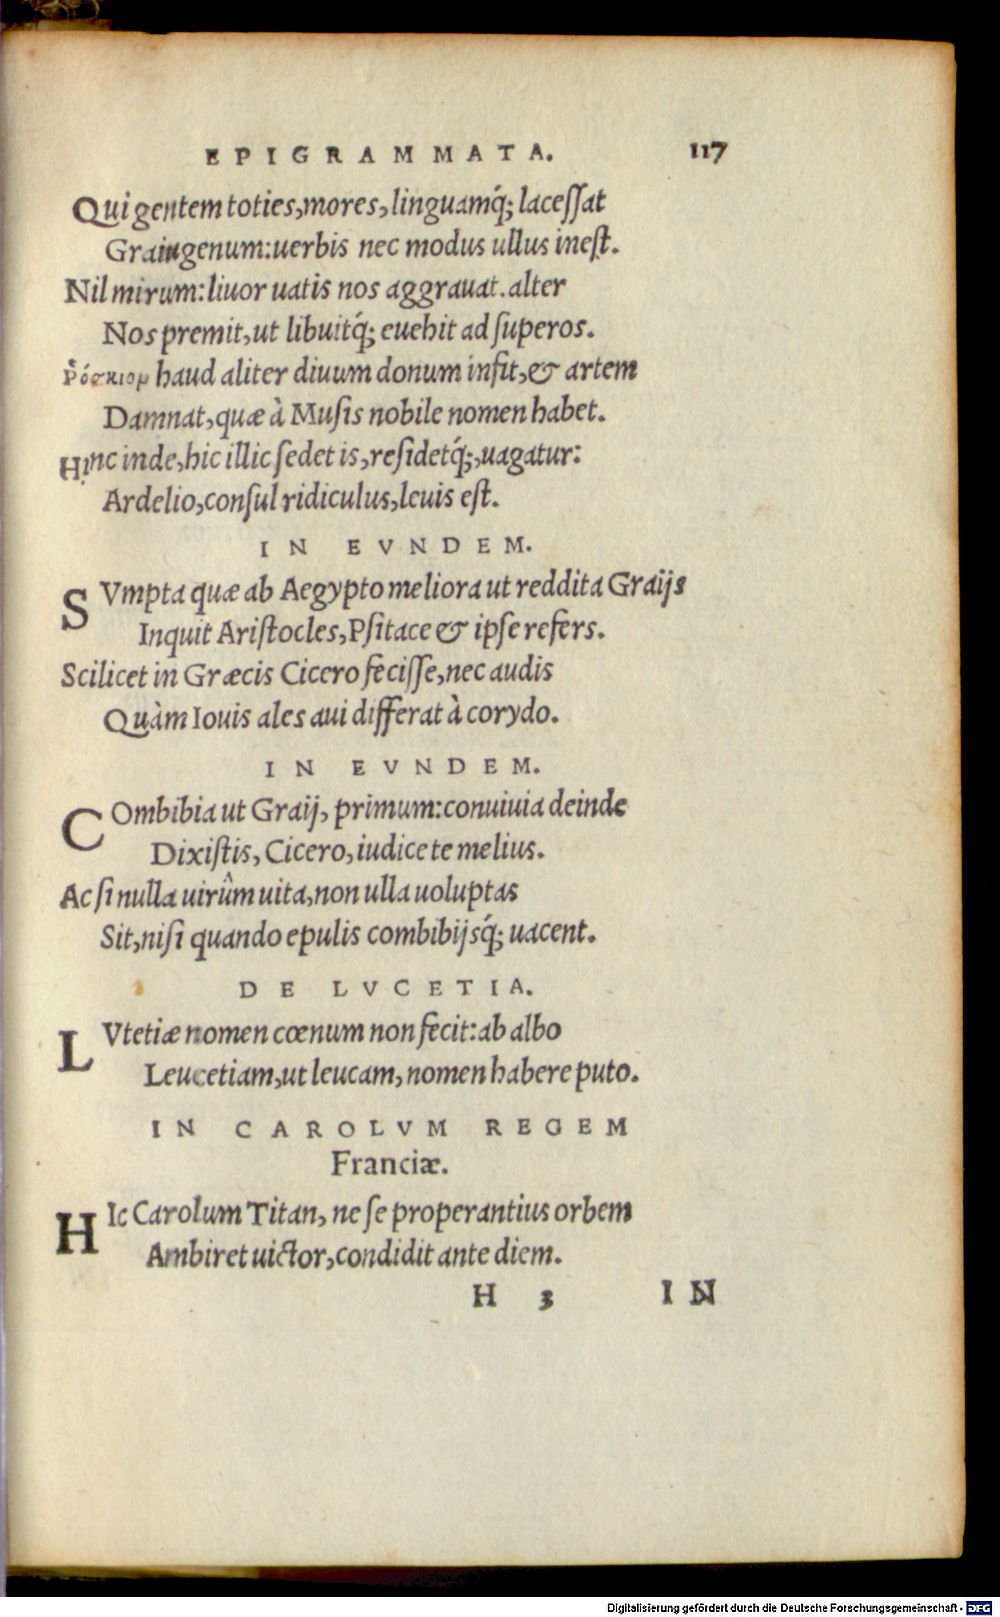 EPIGRAMMATA. 117
Qui gentem toties, mores, linguamq́; lacessat
Graiugenum: uerbis nec modus ullus inest.
Nil mirum: liuor uatis nos aggrauat. alter
Nos premit, ut libuitq́; euehit ad superos.
Ῥόσκιον haud aliter diuum donum insit, & artem
Damnat, quæ à Musis nobile nomen habet.
Hinc inde, hic illic sedet is, residetq́;, uagatur:
Ardelio, consul ridiculus, leuis est.
IN EVNDEM.
SVmpta quæ ab Aegypto meliora ut reddita Graijs
Inquit Aristocles, Psitace & ipse refers.
Scilicet in Græcis Cicero fecisse, nec audis
Quàm Iouis ales aui differat à corydo.
IN EVNDEM.
COmbibia ut Graij, primum: conuiuia deinde
Dixistis, Cicero, iudice te melius.
Ac si nulla uirûm uita, non ulla uoluptas
Sit, nisi quando epulis combibijsq́; uacent.
DE LVCETIA.
LVtetiæ nomen cœnum non fecit: ab albo
Leucetiam, ut leucam, nomen habere puto.
IN CAROLVM REGEM
Franciæ.
HIc Carolum Titan, ne se properantius orbem
Ambiret uictor, condidit ante diem.
H 3 IN
Digitalisierung gefördert durch die Deutsche Forschungsgemeinschaft - DFG